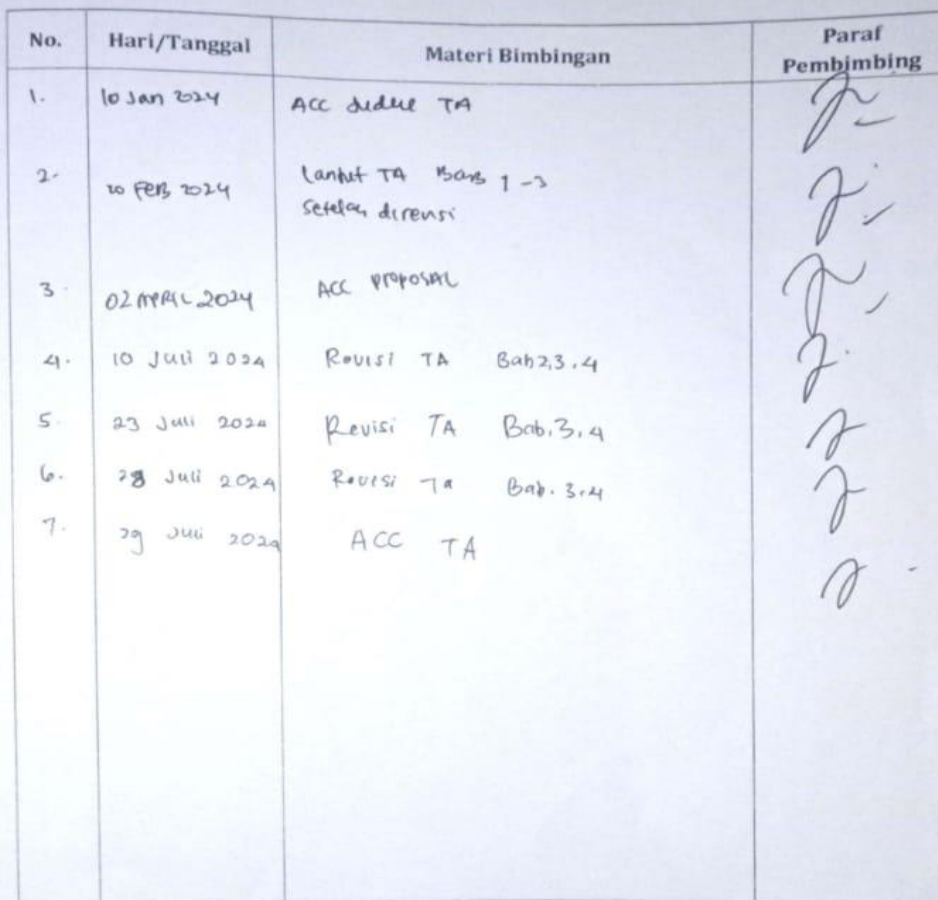 No. Hari/Tanggal Materi Bimbingan Paraf
Pembimbing
1. 10 Jan 2024 ACC Judul TA
2. 20 FEB 2024 Lanjut TA Bab 1-3
Setelah direvisi
3. 02 APRIL 2024 ACC PROPOSAL
4. 10 Juli 2024 Revisi TA Bab 2,3,4
5. 23 Juli 2024 Revisi TA Bab.3,4
6. 28 Juli 2024 Revisi Ta Bab. 3,4
7. 29 Juli 2024 ACC TA